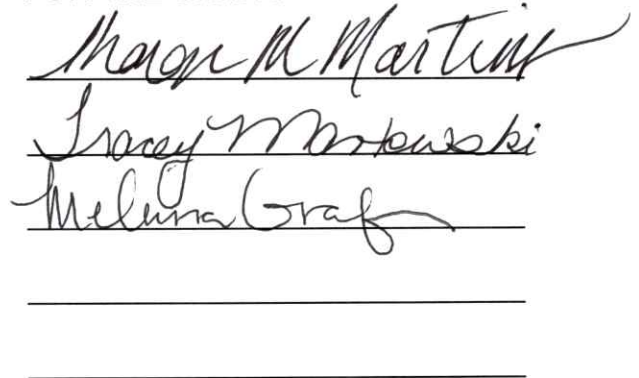 M Martin
Tracey Markowski
Melissa Graf